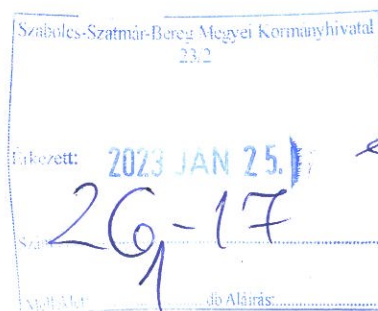 Szabolcs-Szatmár-Bereg Megyei Kormányhivatal
23/2
Érkezett: 2023 JAN 25.
26,-17
Mell db Aláírás: